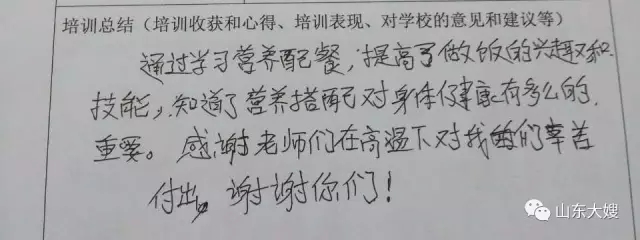 培训总结（培训收获和心得、培训表现、对学校的意见和建议等）
通过学习营养配餐，提高了做饭的兴趣和
技能，知道了营养搭配对身体健康有多么的
重要。感谢老师们在高温下对我们辛苦
付出，谢谢你们！
山东大嫂